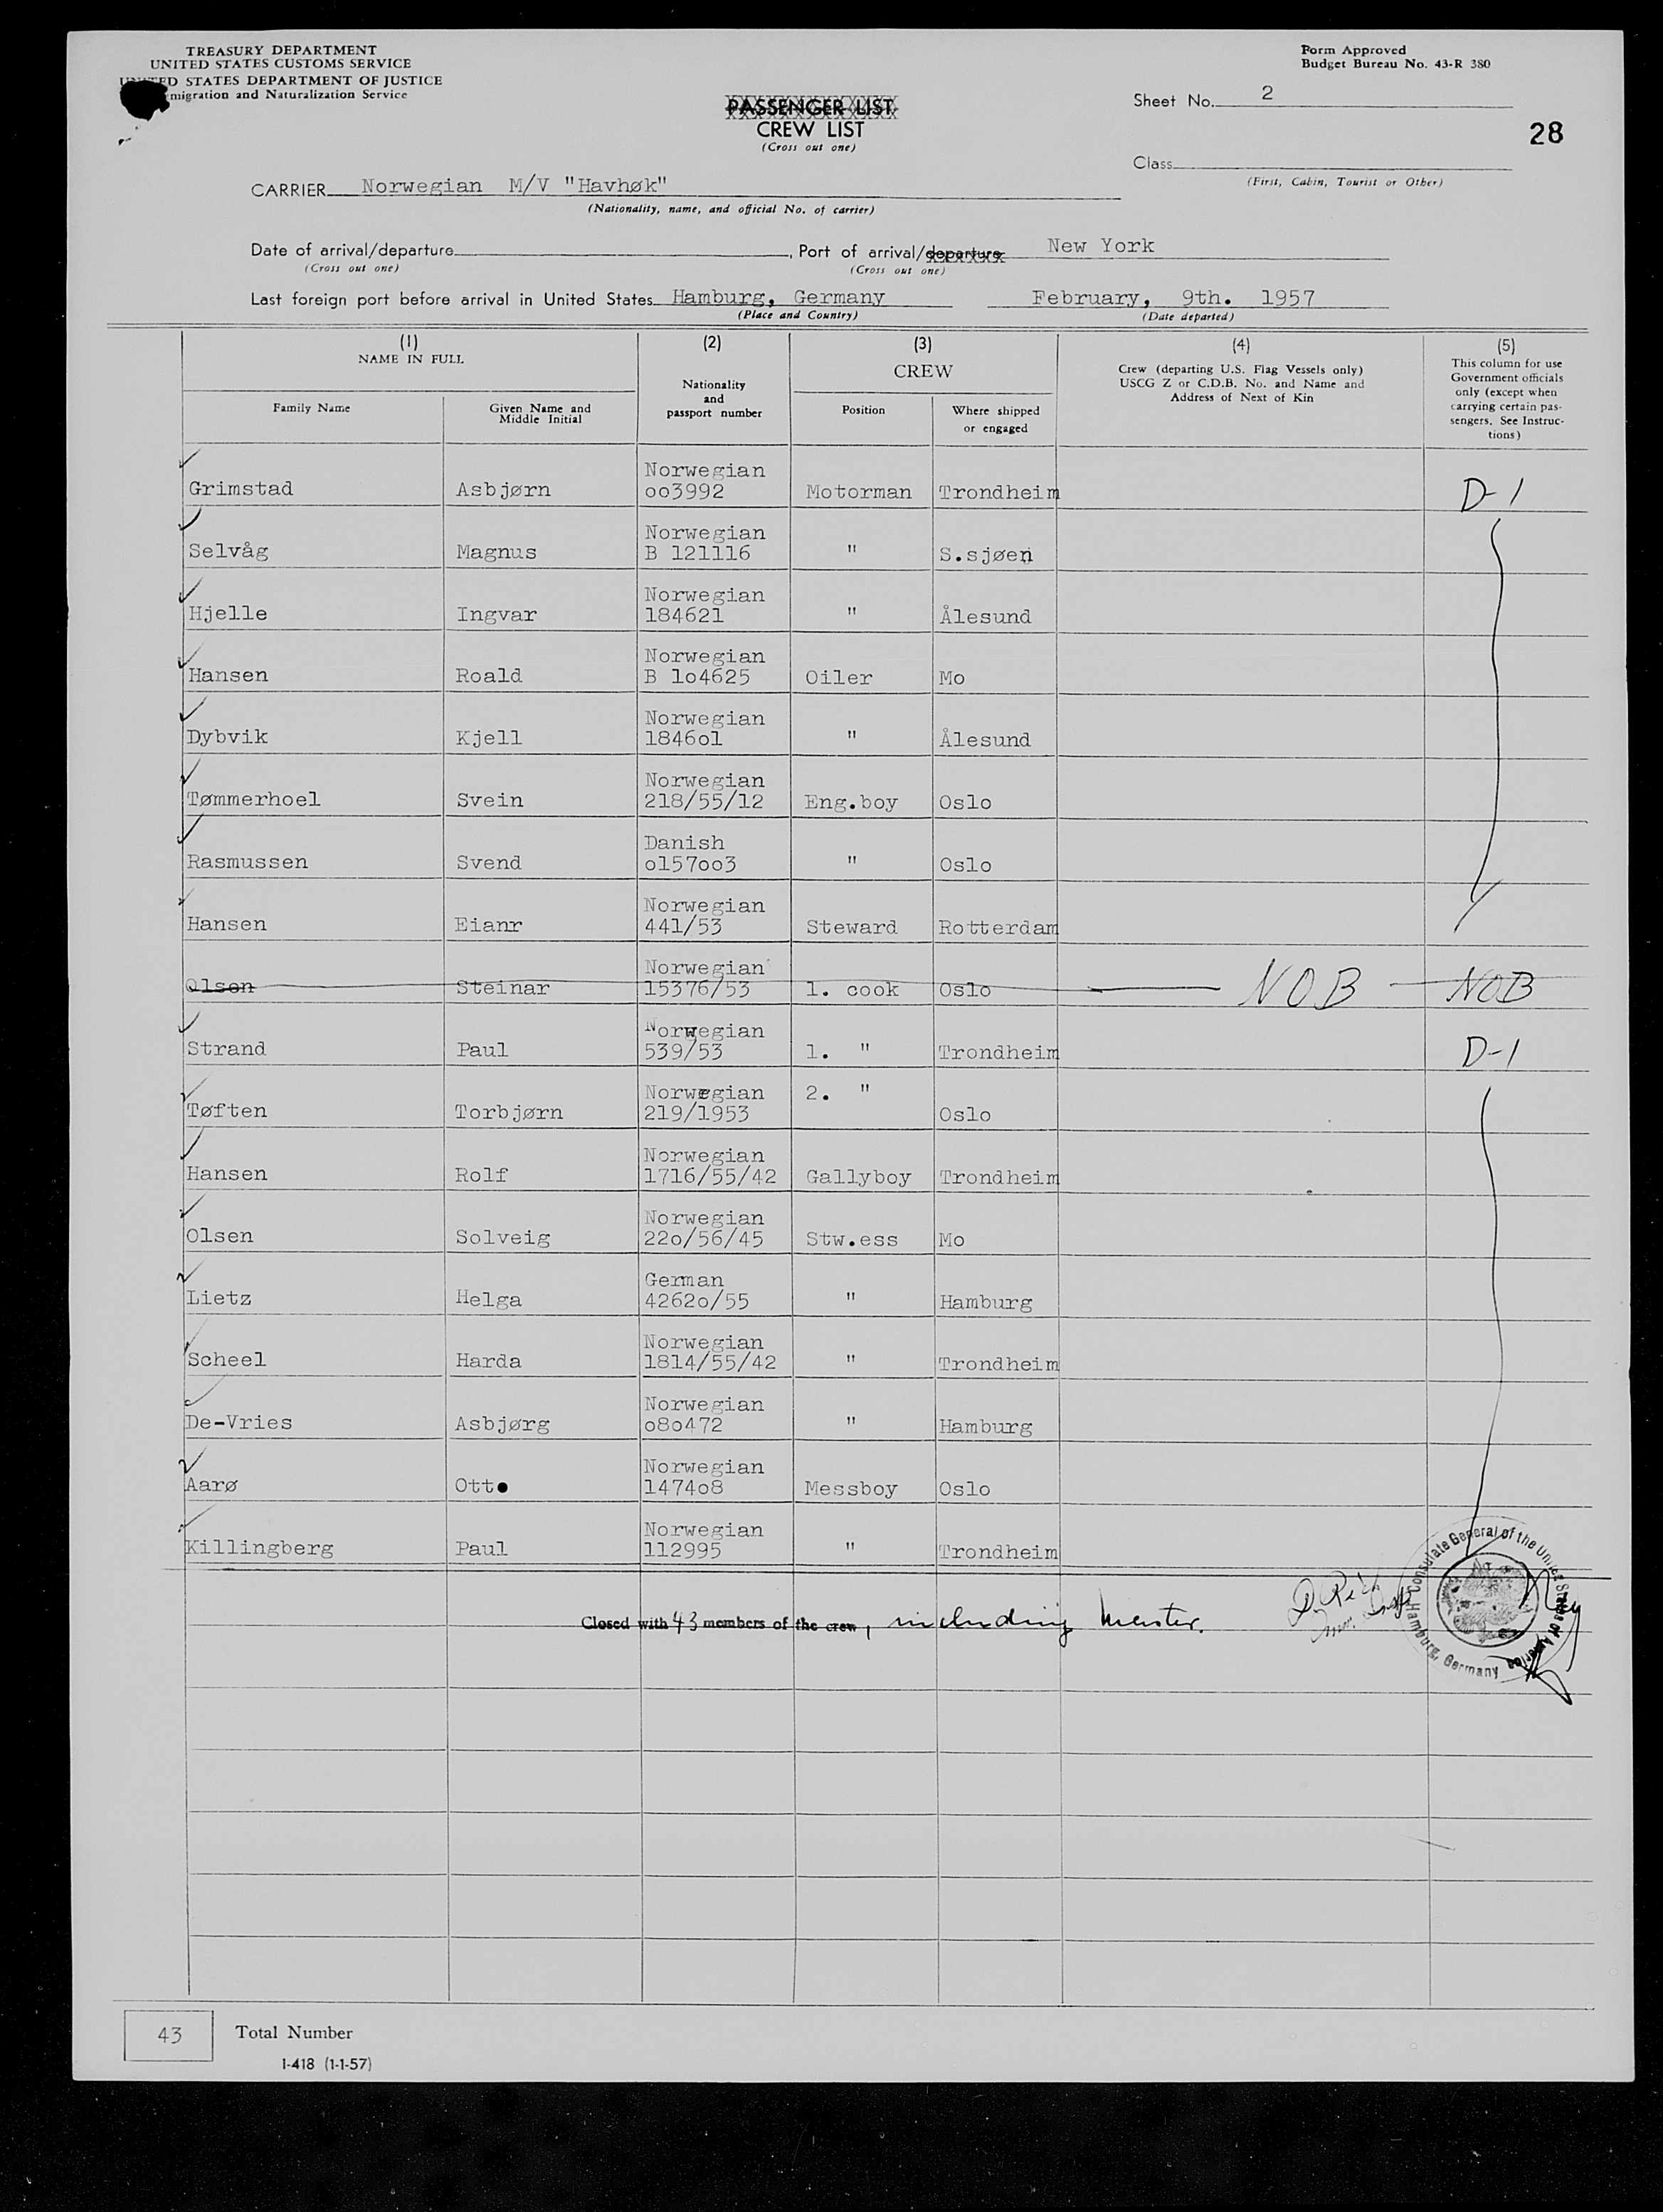 TREASURY DEPARTMENT
UNITED STATES CUSTOMS SERVICE
UNITED STATES DEPARTMENT OF JUSTICE
migration and Naturalization Service
Form Approved
Budget Bureau No. 43-R 380
PASSENGER LIST
CREW LIST
(Cross out one)
Sheet No. 2
28
Class
(First, Cabin, Tourist or Other)
CARRIER Norwegian M/V "Havhøk"
(Nationality, name, and official No. of carrier)
Date of arrival/departure , Port of arrival/departure New York
(Cross out one) (Cross out one)
Last foreign port before arrival in United States Hamburg, Germany February, 9th. 1957
(Place and Country) (Date departed)
(1) NAME IN FULL
Family Name
Given Name and Middle Initial
(2)
Nationality and passport number
(3) CREW
Position
Where shipped or engaged
(4)
Crew (departing U.S. Flag Vessels only)
USCG Z or C.D.B. No. and Name and
Address of Next of Kin
(5)
This column for use
Government officials
only (except when
carrying certain pas-
sengers. See Instruc-
tions)
Norwegian
Grimstad Asbjørn oo3992 Motorman Trondheim D-1
Norwegian
Selvåg Magnus B 121116 " S.sjøen
Norwegian
Hjelle Ingvar 184621 " Ålesund
Norwegian
Hansen Roald B 1o4625 Oiler Mo
Norwegian
Dybvik Kjell 1846o1 " Ålesund
Norwegian
Tømmerhoel Svein 218/55/12 Eng.boy Oslo
Danish
Rasmussen Svend o157oo3 " Oslo
Norwegian
Hansen Eianr 441/53 Steward Rotterdam
Norwegian
Olsen Steinar 15376/53 1. cook Oslo NOB NOB
Norwegian
Strand Paul 539/53 1. " Trondheim D-1
Norwegian 2. "
Tøften Torbjørn 219/1953 Oslo
Norwegian
Hansen Rolf 1716/55/42 Gallyboy Trondheim
Norwegian
Olsen Solveig 22o/56/45 Stw.ess Mo
German
Lietz Helga 4262o/55 " Hamburg
Norwegian
Scheel Harda 1814/55/42 " Trondheim
Norwegian
De-Vries Asbjørg o8o472 " Hamburg
Norwegian
Aarø Otto 1474o8 Messboy Oslo
Norwegian
Killingberg Paul 112995 " Trondheim
Closed with 43 members of the crew, including Master.
Consulate General of the United States of America
Hamburg, Germany
43 Total Number
I-418 (1-1-57)